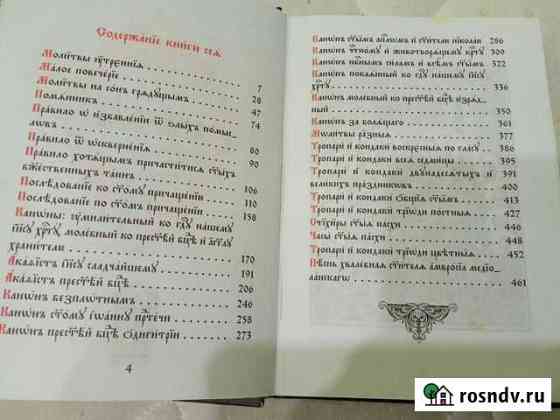 Содержа́нїе кни́ги сеѧ̀
Моли̑твы ᲂу҆́треннїѧ 7
Ма́лое повече́рїе 28
Моли̑твы на со́нъ грѧдꙋ́щымъ 47
Помѧ́нникъ 74
Пра́вило ѿ и҆збавле́нїи ѿ ѕлы́хъ по́мы-
слѡвъ 80
Пра́вило ѿ ѡ҆скверне́нїѧ 90
Пра́вило хотѧ́щымъ причасти́тисѧ ст҃ы́хъ
бж҃е́ственныхъ та́инъ 106
Послѣ́дованїе ко ст҃о́мꙋ причаще́нїю 110
Послѣ́дованїе по ст҃о́мъ причаще́нїи 158
Канѡ́ны: ᲂу҆мили́тельный ко гдⷭ҇ꙋ на́шемꙋ
і҆и҃сꙋ хрⷭ҇тꙋ̀ моле́бный ко прест҃ѣ́й бцⷣѣ и҆ а҆́гг҃лꙋ
храни́телю 170
А҆ка́ѳїстъ і҆и҃сꙋ сладча́йшемꙋ 191
А҆ка́ѳїстъ прест҃ѣ́й бцⷣѣ 206
Канѡ́нъ безпло́тнымъ 246
Канѡ́нъ ст҃о́мꙋ і҆ѡа́ннꙋ прⷣте́чи 258
Канѡ́нъ прест҃ѣ́й бцⷣѣ ѻ҆диги́трїи 273
4
Канѡ́нъ ст҃ы̑мъ а҆пⷭ҇лѡмъ и҆ ст҃и́телю нїко́лаю 286
Канѡ́нъ чⷭ҇тно́мꙋ и҆ животворѧ́щемꙋ крⷭ҇тꙋ̀ 309
Канѡ́нъ нбⷭ҇нымъ си́ламъ и҆ всѣ̑мъ ст҃ы̑мъ 322
Канѡ́нъ покаѧ́нный ко гдⷭ҇ꙋ на́шемꙋ і҆и҃сꙋ
хрⷭ҇тꙋ̀ 336
Канѡ́нъ моле́бный ко прест҃ѣ́й бцⷣѣ и҆зрѧ́д-
ный 350
Канѡ́нъ за болѧ́щаго 361
Моли̑твы ра̑зныѧ 377
Тропарѝ и҆ кондакѝ воскре́сныѧ по гла́сꙋ 385
Тропарѝ и҆ кондакѝ всеѧ̀ седми́цы 391
Тропарѝ и҆ кондакѝ двꙋнадесѧ́тыхъ и҆
вели́кихъ пра́здникѡвъ 400
Тропарѝ и҆ кондакѝ ѻ҆́бщїѧ ст҃ы̑мъ 413
Тропарѝ и҆ кондакѝ трїѡ́ди по́стныѧ 437
Стїхи̑ры па́схи 446
Часы̀ ст҃ы́ѧ па́схи 448
Тропарѝ и҆ кондакѝ трїѡ́ди цвѣ́тныѧ 452
Пѣ́снь хвале́бная ст҃и́телѧ а҆мвро́сїа медїо-
ла́нскагѡ 461
rosndv.ru